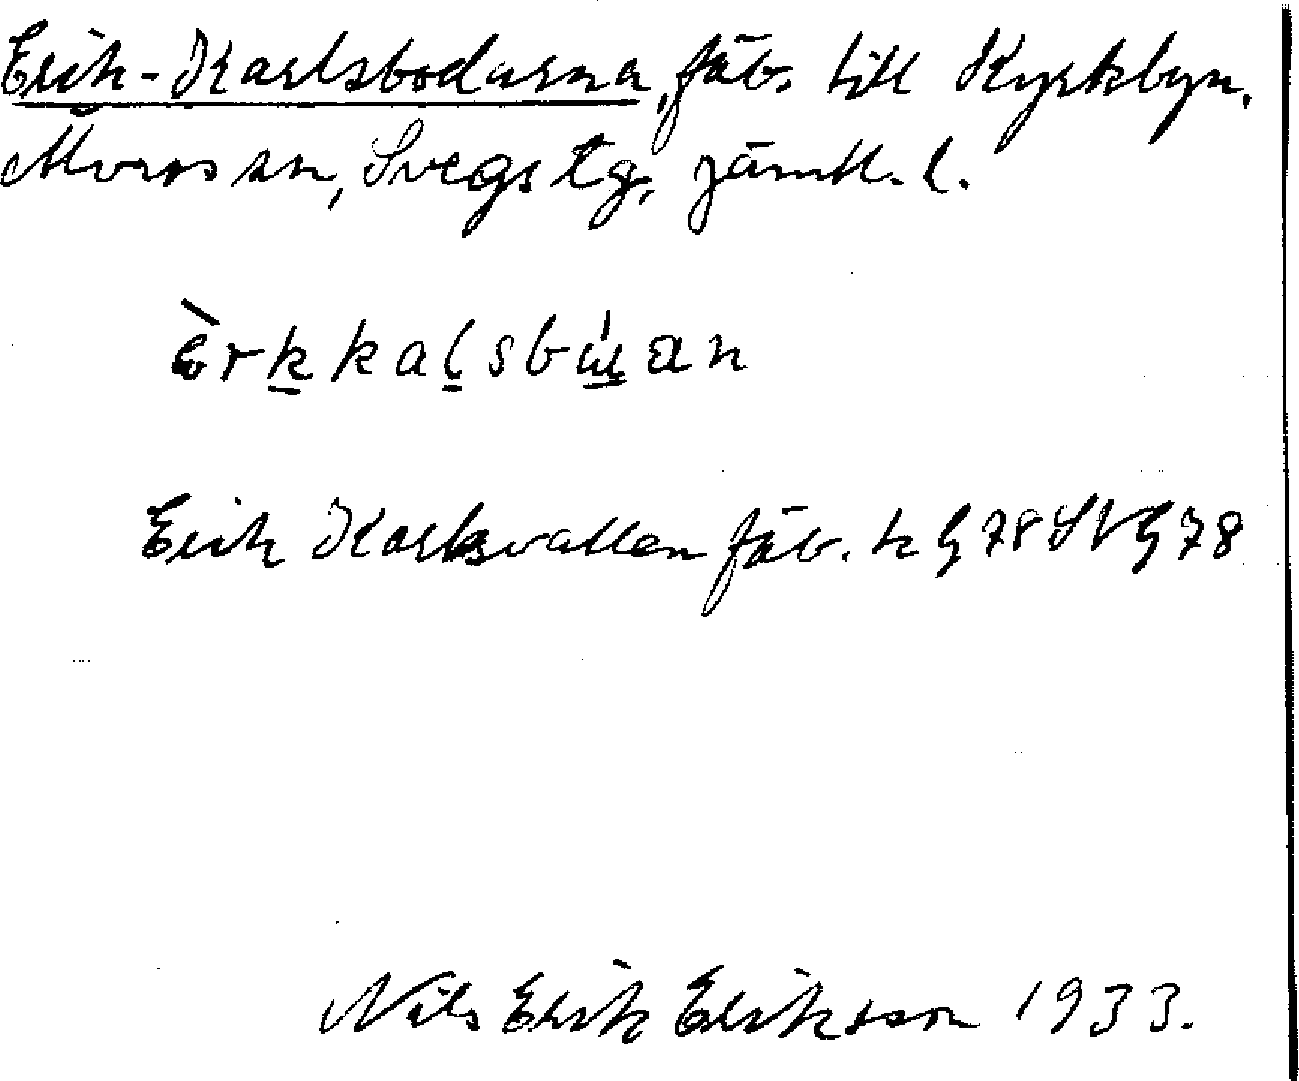 Erik-Karlsbodarna, fäb. till Kyrkbyn,
Överhogdals sn, Svegs tg, Jämtl. l.
èrkkalsbúan
Erik Karlsvallen fäb. k G 78 SV G 78
Nils Erik Eriksson 1933.